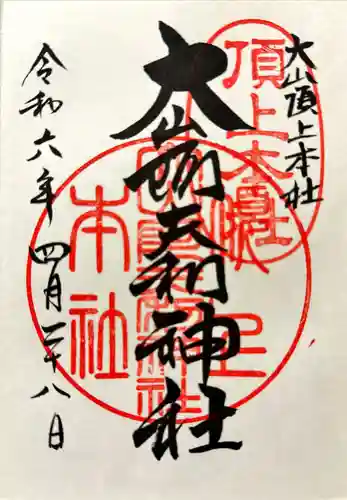 大山頂上本社
大山阿夫利神社
令和六年 四月二十八日
頂上本社
本社